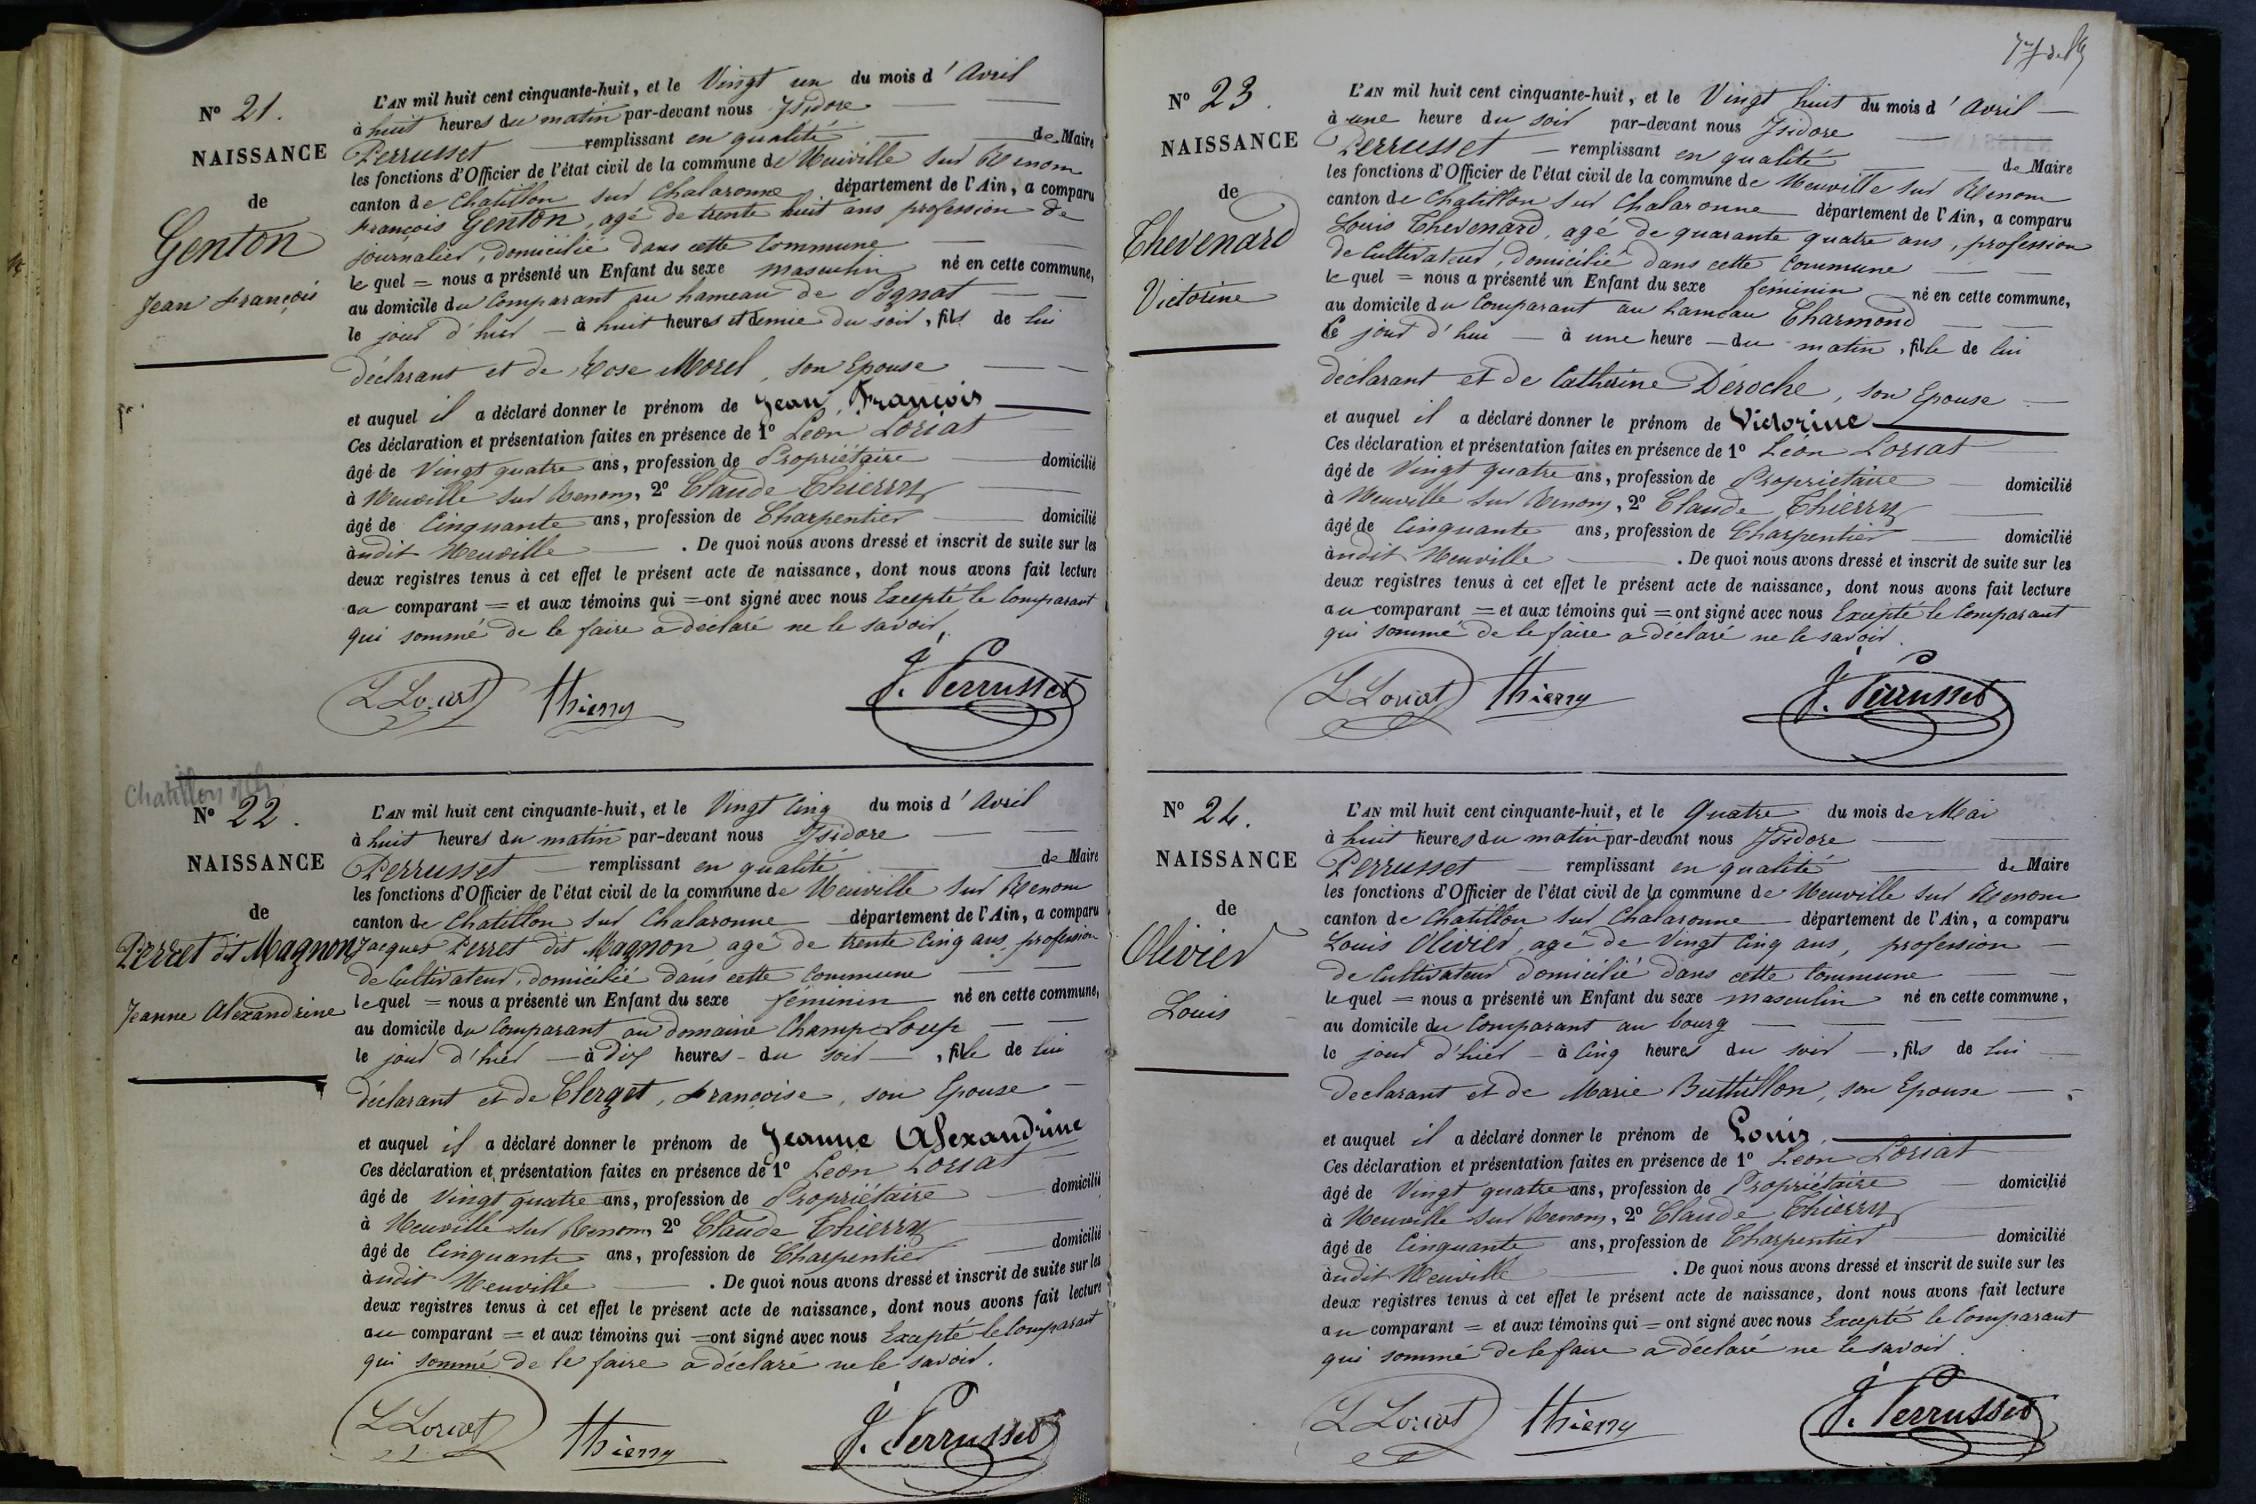 N° 21.
NAISSANCE
de
Genton
Jean François
L'AN mil huit cent cinquante-huit, et le Vingt un du mois d'Avril
à huit heures du matin par-devant nous Isidore
Perrusset remplissant en qualité de Maire
les fonctions d'Officier de l'état civil de la commune de Neuville sur Renom
canton de Chatillon sur Chalaronne département de l'Ain, a comparu
François Genton, agé de trente huit ans profession de
journalier, domicilié dans cette Commune
le quel = nous a présenté un Enfant du sexe masculin né en cette commune,
au domicile du Comparant au hameau de
le jour d'hier à huit heures et demie du soir, fils de lui
déclarant et de Rose Morel, son Epouse
et auquel il a déclaré donner le prénom de Jean François
Ces déclaration et présentation faites en présence de 1° Léon Loriat
âgé de Vingt quatre ans, profession de Propriétaire domicilié
à Neuville sur Renom, 2° Claude Thierry
âgé de Cinquante ans, profession de Charpentier domicilié
àudit Neuville . De quoi nous avons dressé et inscrit de suite sur les
deux registres tenus à cet effet le présent acte de naissance, dont nous avons fait lecture
au comparant = et aux témoins qui = ont signé avec nous Excepté le Comparant
qui sommé de le faire a déclaré ne le savoir.
L Loriat Thierry J. Perrusset
Chatillon s/Ch.
N° 22.
NAISSANCE
de
Perret dit Magnon
Jeanne Alexandrine
L'AN mil huit cent cinquante-huit, et le Vingt Cinq du mois d'Avril
à huit heures du matin par-devant nous Isidore
Perrusset remplissant en qualité de Maire
les fonctions d'Officier de l'état civil de la commune de Neuville sur Renom
canton de Chatillon sur Chalaronne département de l'Ain, a comparu
Jacques Perret dit Magnon agé de trente Cinq ans, profession
de Cultivateur, domicilié dans cette Commune
le quel = nous a présenté un Enfant du sexe féminin né en cette commune,
au domicile du Comparant au domaine Champ Loup
le jour d'hier à Dix heures du soir, fille de lui
déclarant et de Clerget, Françoise, son Epouse
et auquel il a déclaré donner le prénom de Jeanne Alexandrine
Ces déclaration et présentation faites en présence de 1° Léon Loriat
âgé de Vingt quatre ans, profession de Propriétaire domicilié
à Neuville sur Renom, 2° Claude Thierry
âgé de Cinquante ans, profession de Charpentier domicilié
àudit Neuville . De quoi nous avons dressé et inscrit de suite sur les
deux registres tenus à cet effet le présent acte de naissance, dont nous avons fait lecture
au comparant = et aux témoins qui = ont signé avec nous Excepté le Comparant
qui sommé de le faire a déclaré ne le savoir.
L Loriat Thierry J. Perrusset
N° 23.
NAISSANCE
de
Thevenard
Victorine
L'AN mil huit cent cinquante-huit, et le Vingt huit du mois d'Avril
à une heure du soir par-devant nous Isidore
Perrusset remplissant en qualité de Maire
les fonctions d'Officier de l'état civil de la commune de Neuville sur Renom
canton de Chatillon sur Chalaronne département de l'Ain, a comparu
Louis Thevenard, agé de quarante quatre ans, profession
de Cultivateur, domicilié dans cette Commune
le quel = nous a présenté un Enfant du sexe feminin né en cette commune,
au domicile du Comparant au hameau Charmond
le jour d'hui à une heure du matin, fille de lui
déclarant et de Catherine Déroche, son Epouse
et auquel il a déclaré donner le prénom de Victorine
Ces déclaration et présentation faites en présence de 1° Léon Loriat
âgé de Vingt quatre ans, profession de Propriétaire domicilié
à Neuville sur Renom, 2° Claude Thierry
âgé de Cinquante ans, profession de Charpentier domicilié
àudit Neuville . De quoi nous avons dressé et inscrit de suite sur les
deux registres tenus à cet effet le présent acte de naissance, dont nous avons fait lecture
au comparant = et aux témoins qui = ont signé avec nous Excepté le Comparant
qui sommé de le faire a déclaré ne le savoir.
L Loriat Thierry J. Perrusset
N° 24.
NAISSANCE
de
Olivier
Louis
L'AN mil huit cent cinquante-huit, et le Quatre du mois de Mai
à huit heures du matin par-devant nous Isidore
Perrusset remplissant en qualité de Maire
les fonctions d'Officier de l'état civil de la commune de Neuville sur Renom
canton de Chatillon sur Chalaronne département de l'Ain, a comparu
Louis Olivier, agé de Vingt Cinq ans, profession
de Cultivateur domicilié dans cette Commune
le quel = nous a présenté un Enfant du sexe masculin né en cette commune,
au domicile du Comparant au bourg
le jour d'hier à Cinq heures du soir, fils de lui
declarant et de Marie Buthillon, son Epouse
et auquel il a déclaré donner le prénom de Louis.
Ces déclaration et présentation faites en présence de 1° Léon Loriat
âgé de Vingt quatre ans, profession de Propriétaire domicilié
à Neuville sur Renom, 2° Claude Thierry
âgé de Cinquante ans, profession de Charpentier domicilié
àudit Neuville . De quoi nous avons dressé et inscrit de suite sur les
deux registres tenus à cet effet le présent acte de naissance, dont nous avons fait lecture
au comparant = et aux témoins qui = ont signé avec nous Excepté le Comparant
qui sommé de le faire a déclaré ne le savoir.
L Loriat Thierry J. Perrusset